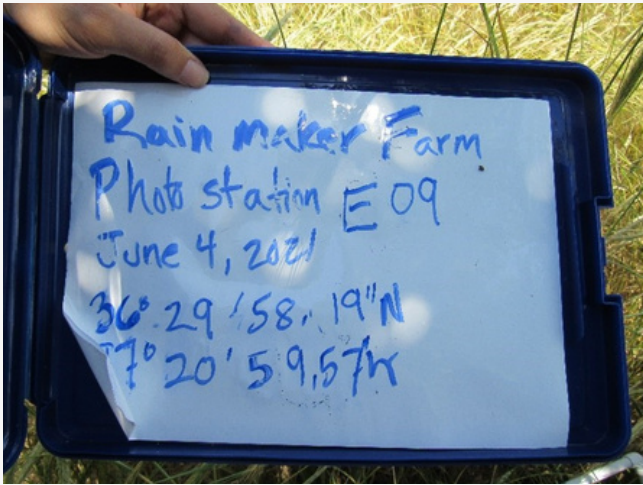 Rain maker Farm
Photo station E 09
June 4, 2021
36° 29 '58. 19"N
7° 20' 59.57"W